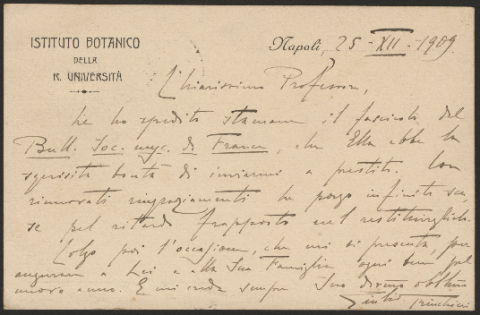 ISTITUTO BOTANICO
DELLA
R. UNIVERSITÀ
Napoli, 25-XII-1909.
Chiarissimo Professore,
Le ho spedito stamane il fascicolo del
Bull. Soc. myc. de France, che Ella ebbe la
squisita bontà di inviarmi a prestito. Con
rinnovati ringraziamenti Le porgo infinite scu-
se pel ritardo frapposto nel restituirglielo.
Colgo poi l'occasione, che mi si presenta, per
augurare a Lei e alla Sua Famiglia ogni bene pel
nuovo anno. E mi creda sempre Suo devmo obbl.mo
Giulio Trinchieri